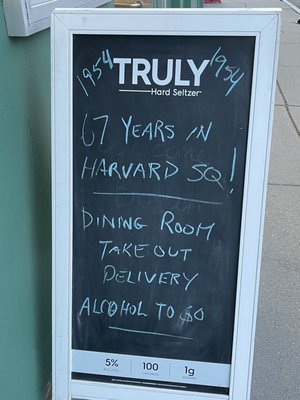 1954 TRULY 1954
Hard Seltzer
67 YEARS IN
HARVARD SQ!
DINING ROOM
TAKE OUT
DELIVERY
ALCOHOL TO GO
5% 100 1g
ALC/VOL CALORIES SUGARS